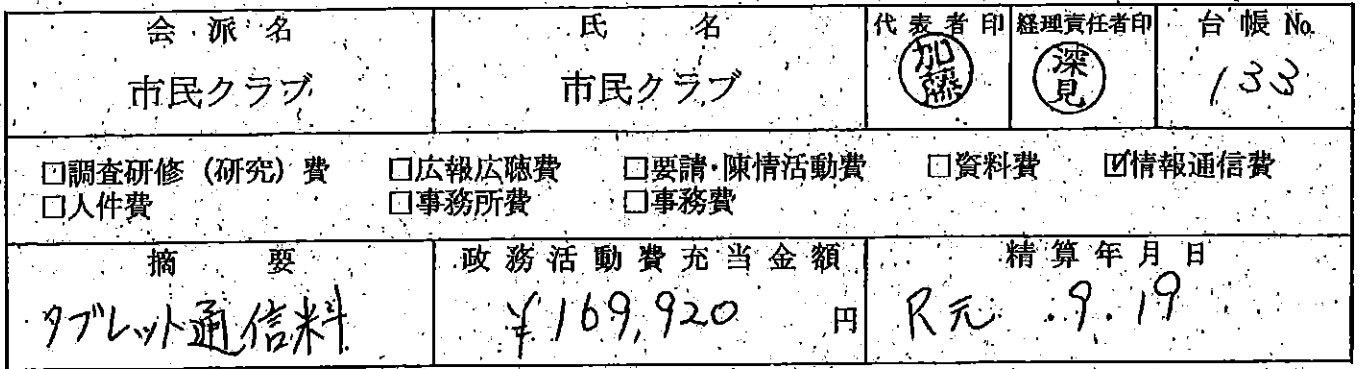 会派名 氏名 代表者印 経理責任者印 台帳No.
市民クラブ 市民クラブ 加藤 深見 133
□調査研修(研究)費 □広報広聴費 □要請・陳情活動費 □資料費 ☑情報通信費
□人件費 □事務所費 □事務費
摘要 政務活動費充当金額 精算年月日
タブレット通信料 ¥169,920 円 R元.9.19